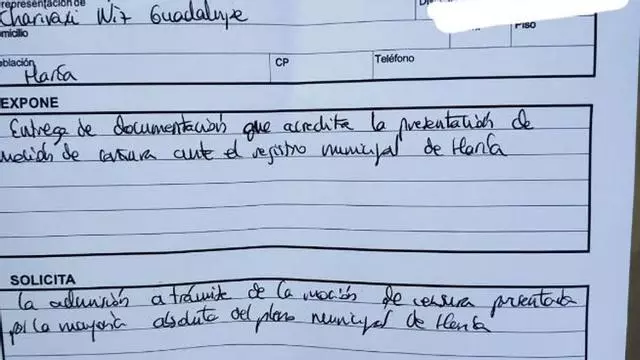 representación de
Charivari Niz Guadalupe
omicilio
Piso
oblación
Haría
CP
Teléfono
EXPONE
Entrega de documentación que acredita la presentación de
moción de censura ante el registro municipal de Haría
SOLICITA
La admisión a trámite de la moción de censura presentada
por la mayoría absoluta del pleno municipal de Haría